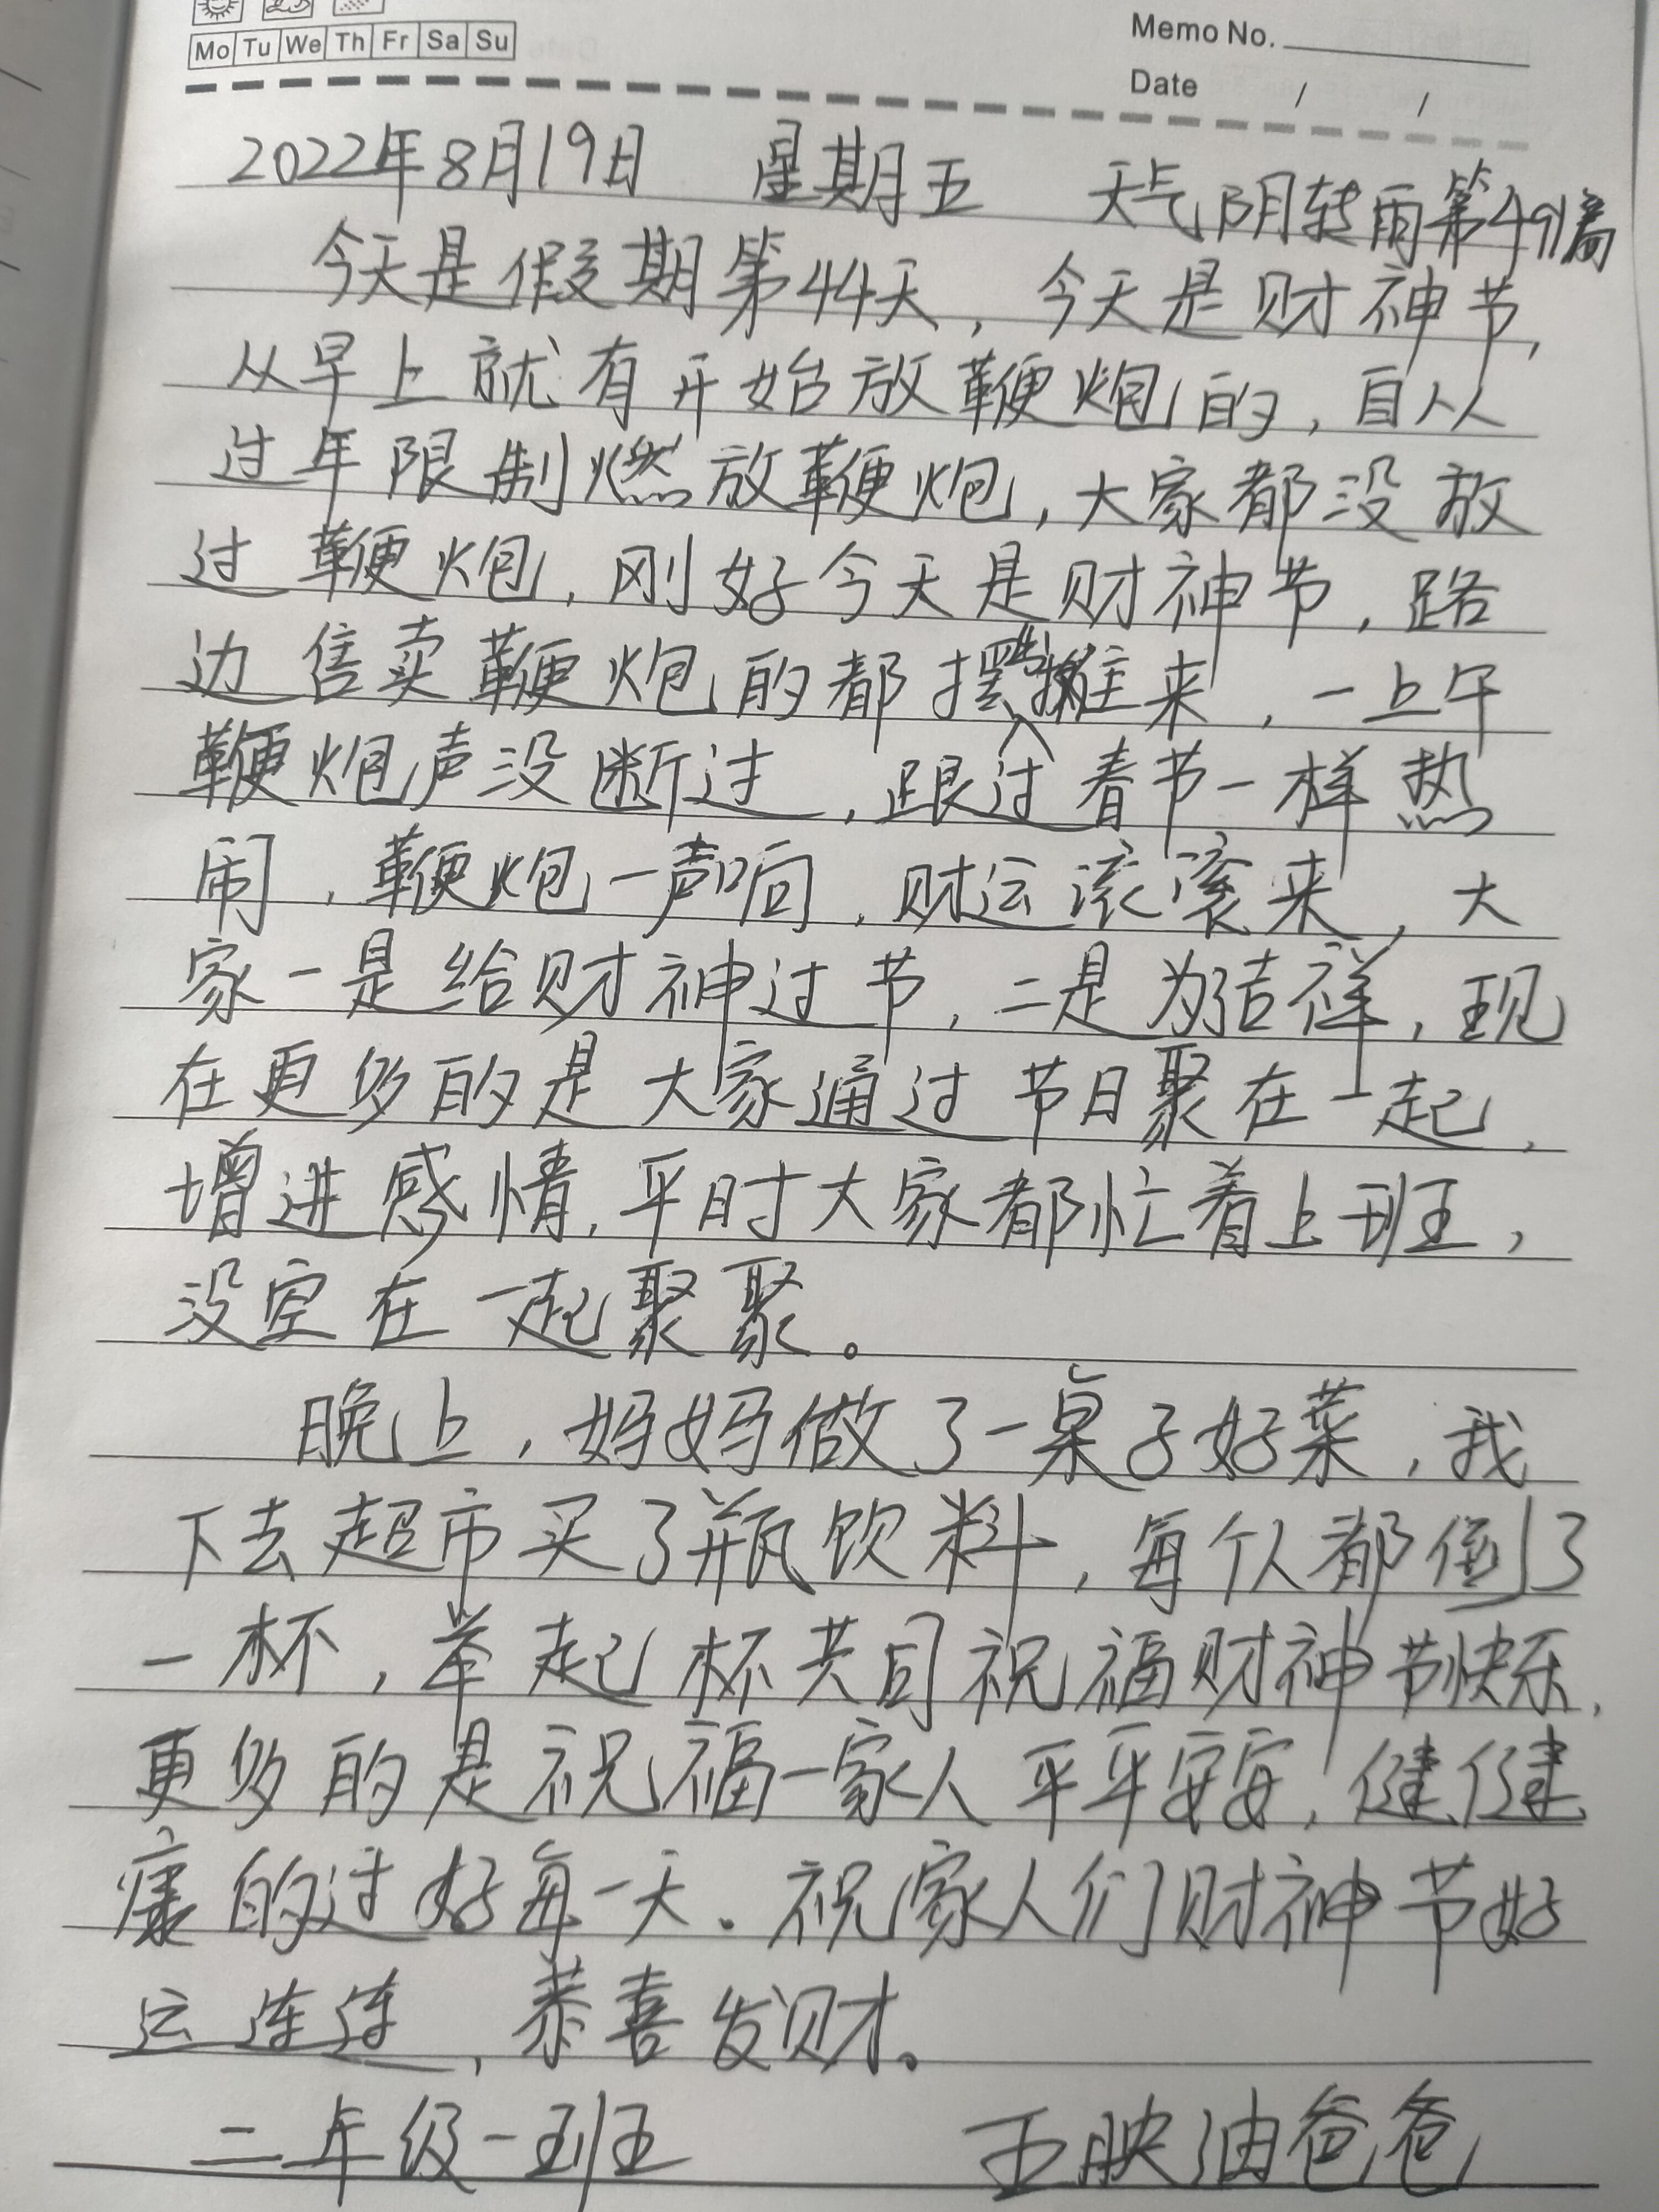 Mo Tu We Th Fr Sa Su
Memo No.
Date / /
2022年8月19日 星期五 天气阴转雨第491篇
今天是假期第44天，今天是财神节，
从早上就有开始放鞭炮的，自从
过年限制燃放鞭炮，大家都没放
过鞭炮，刚好今天是财神节，路
边售卖鞭炮的都摆摊来，一上午
鞭炮声没断过，跟过春节一样热
闹，鞭炮一声响，财运滚滚来，大
家一是给财神过节，二是为了吉祥，现
在更多的是大家通过节日聚在一起，
增进感情，平时大家都忙着上班，
没空在一起聚聚。
晚上，妈妈做了一桌子好菜，我
下去超市买了瓶饮料，每个人都倒了
一杯，举起杯共同祝福财神节快乐，
更多的是祝福一家人平平安安，健健
康的过好每一天。祝家人们财神节好
运连连，恭喜发财。
二年级一班 王映油爸爸